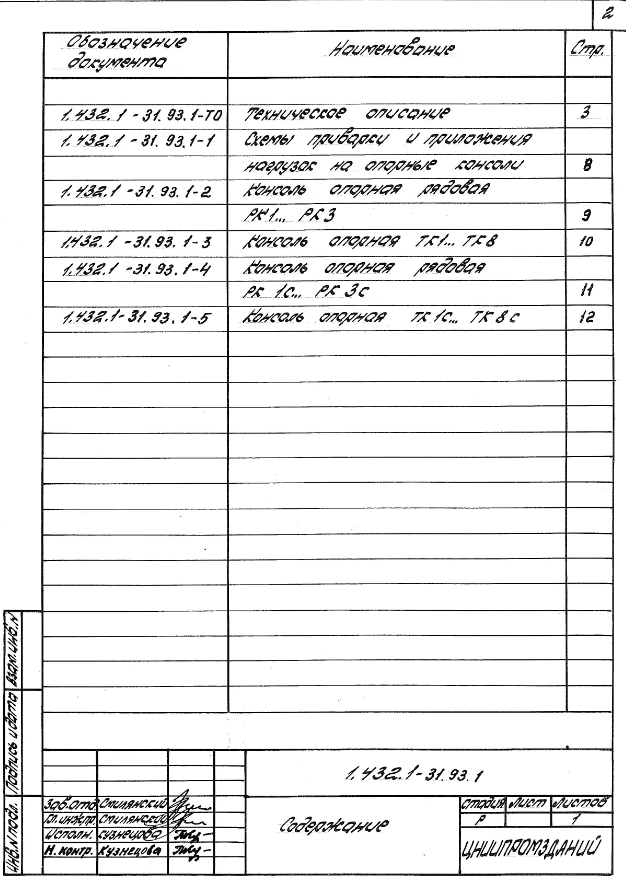 2
Обозначение документа Наименование Стр.
1.432.1-31.93.1-ТО Техническое описание 3
1.432.1-31.93.1-1 Схемы приварки и приложения
нагрузок на опорные консоли 8
1.432.1-31.93.1-2 Консоль опорная рядовая
РК1... РК3 9
1.432.1-31.93.1-3 Консоль опорная ТК1... ТК8 10
1.432.1-31.93.1-4 Консоль опорная рядовая
РК 1с... РК 3с 11
1.432.1-31.93.1-5 Консоль опорная ТК 1с... ТК 8с 12
Взам.инв.N
Подпись и дата
Инв.N подл.
1.432.1-31.93.1
Зав.отд. Смилянский
Гл.инж.пр. Смилянский
Исполн. Кузнецова
Н.контр. Кузнецова
Содержание
Стадия Лист Листов
Р 1
ЦНИИПРОМЗДАНИЙ